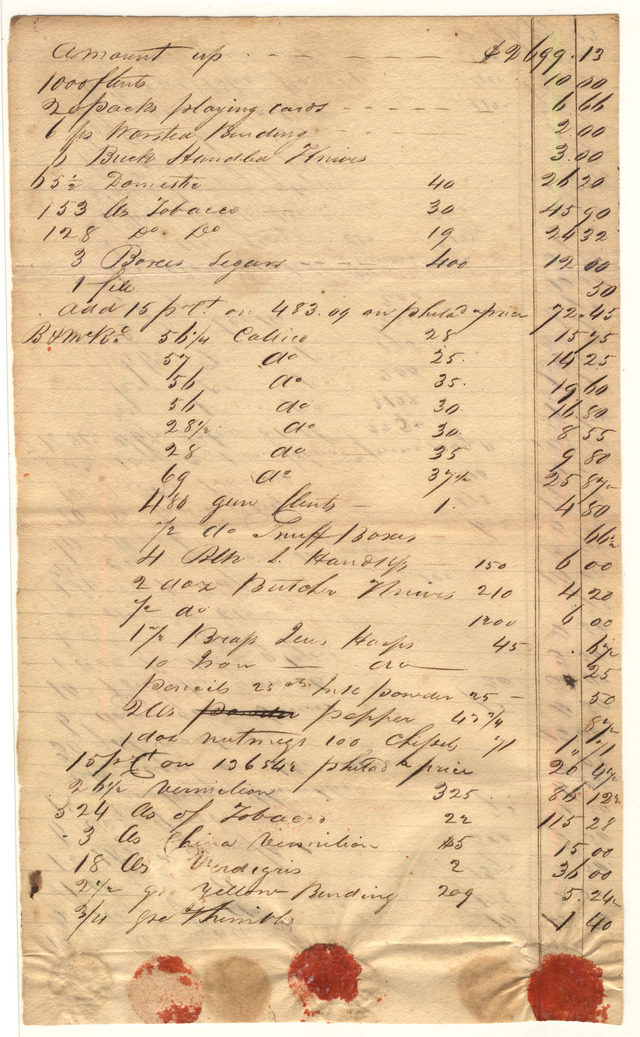 Amount up - - - - $2699.13
1000 flints 10 00
20 packs playing cards - - - - 6 66
6 ps Worsted Binding - - 2.00
Buck Handled Knives 3.00
65½ Domestic 40 26 20
153 lbs Tobacco 30 45 90
128 Do Do 19 24 32
3 Boxes Segars - - - 400 12 00
1 file 50
add 15 pr ct. on 483.09 on philad a price 72.45
56¼ Calico 28 15 75
57 do 25. 14 25
56 do 35. 19 60
56 do 30. 16.80
28½ do 30. 8 55
28 do 35 9 80
69 do 37½ 25 87½
480 gun flints - 1. 4 80
½ do Snuff Boxes 66½
4 Blk S. Handkfs - 150 6 00
2 doz Butcher Knives 210 4 20
½ do 1200 6 00
1½ Brass Jews Harps 45 . 67½
10 Iron — do — 25
pencils 25 Ink powder 25 - 50
2 lbs powder pepper 43¾ 87½
1 doz nutmegs 100 Chissels 71 1 71
15 pr ct on 136 54½ philad a price 20 47½
26½ Vermilion 325 86 12½
524 lbs of Tobacco 22 115 28
3 lbs China Vermilion $5 15 00
18 lbs Verdigris 2 36 00
2½ gr Yellow Binding 209 5.24
3/4 gro Thimbls 1 40